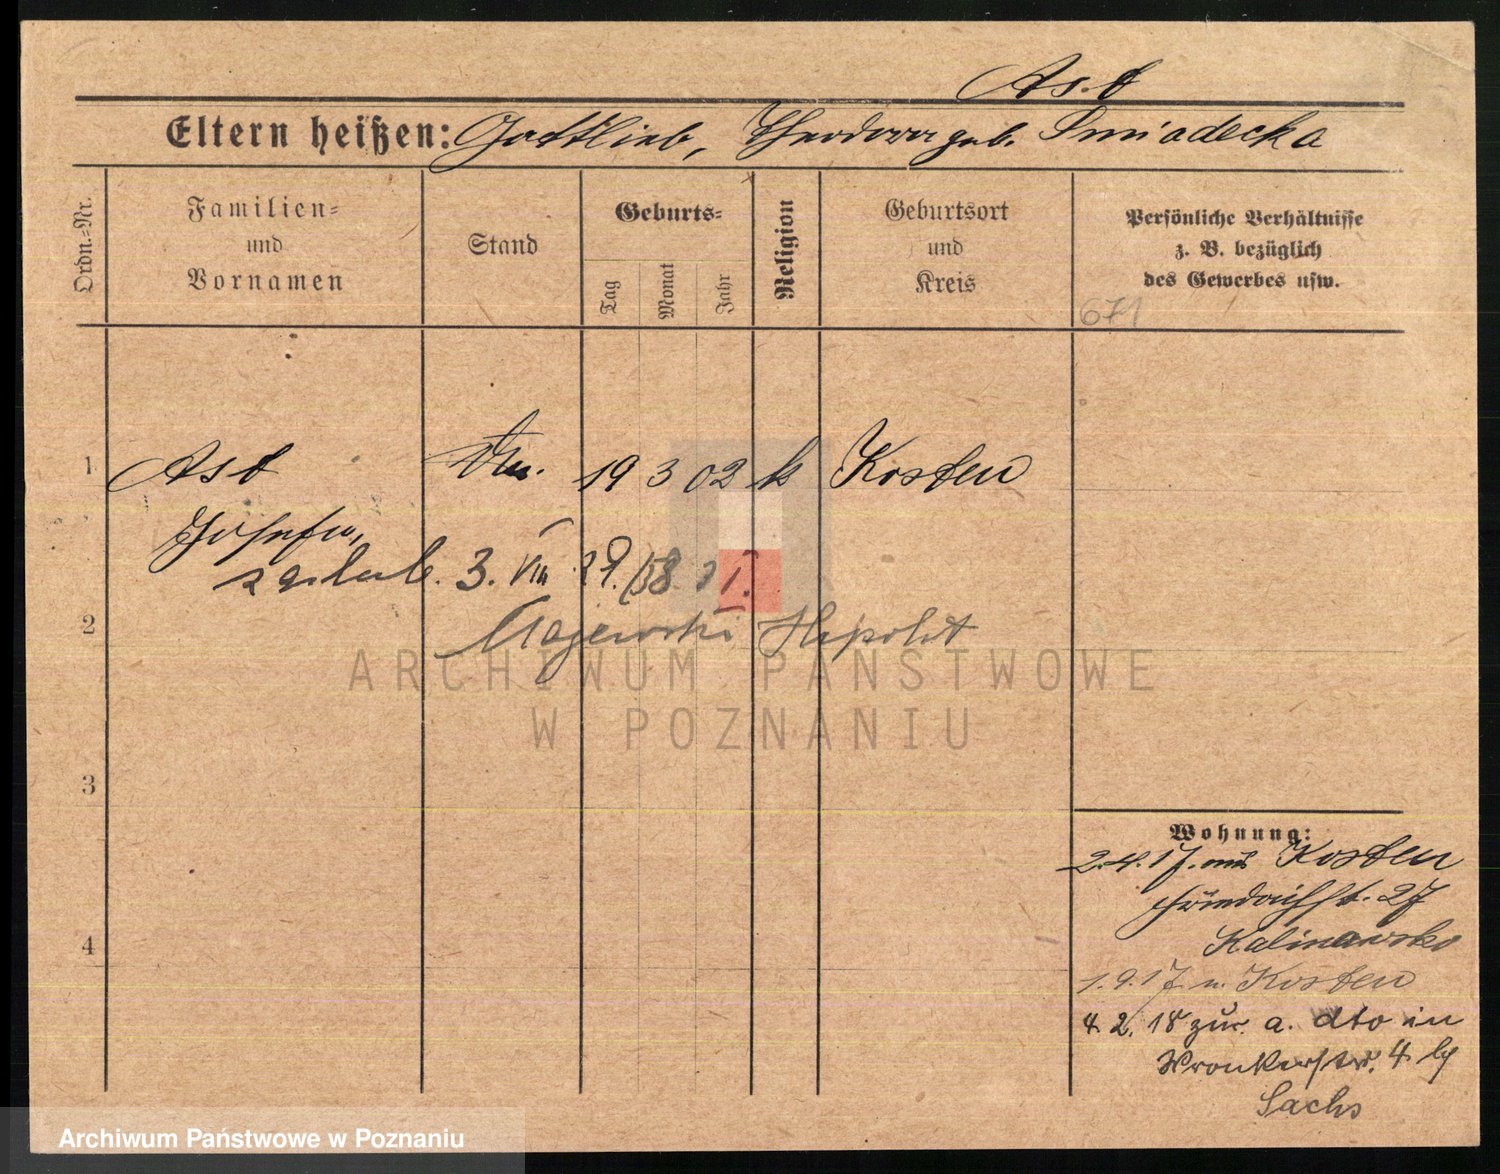 Ast
Eltern heißen: Gottlieb, Theodora geb. Smiadecka
Ordn.=Nr.
Familien=
und
Vornamen
Stand
Geburts=
Tag
Monat
Jahr
Religion
Geburtsort
und
Kreis
Persönliche Verhältnisse
z. B. bezüglich
des Gewerbes usw.
671
1 Ast 19 3 02 k Kosten
Josefa,
zaslub. 3. VIII 29. 31.
2 Majewski Hipolit
ARCHIWUM PAŃSTWOWE
W POZNANIU
3
Wohnung:
2.4.17. aus Kosten
Friedrichst. 27
Kalinowska
4
1.9.17 n. Kosten
4.2.18 zur. a. dto in
Wronkerstr. 4 by
Sachs
Archiwum Państwowe w Poznaniu